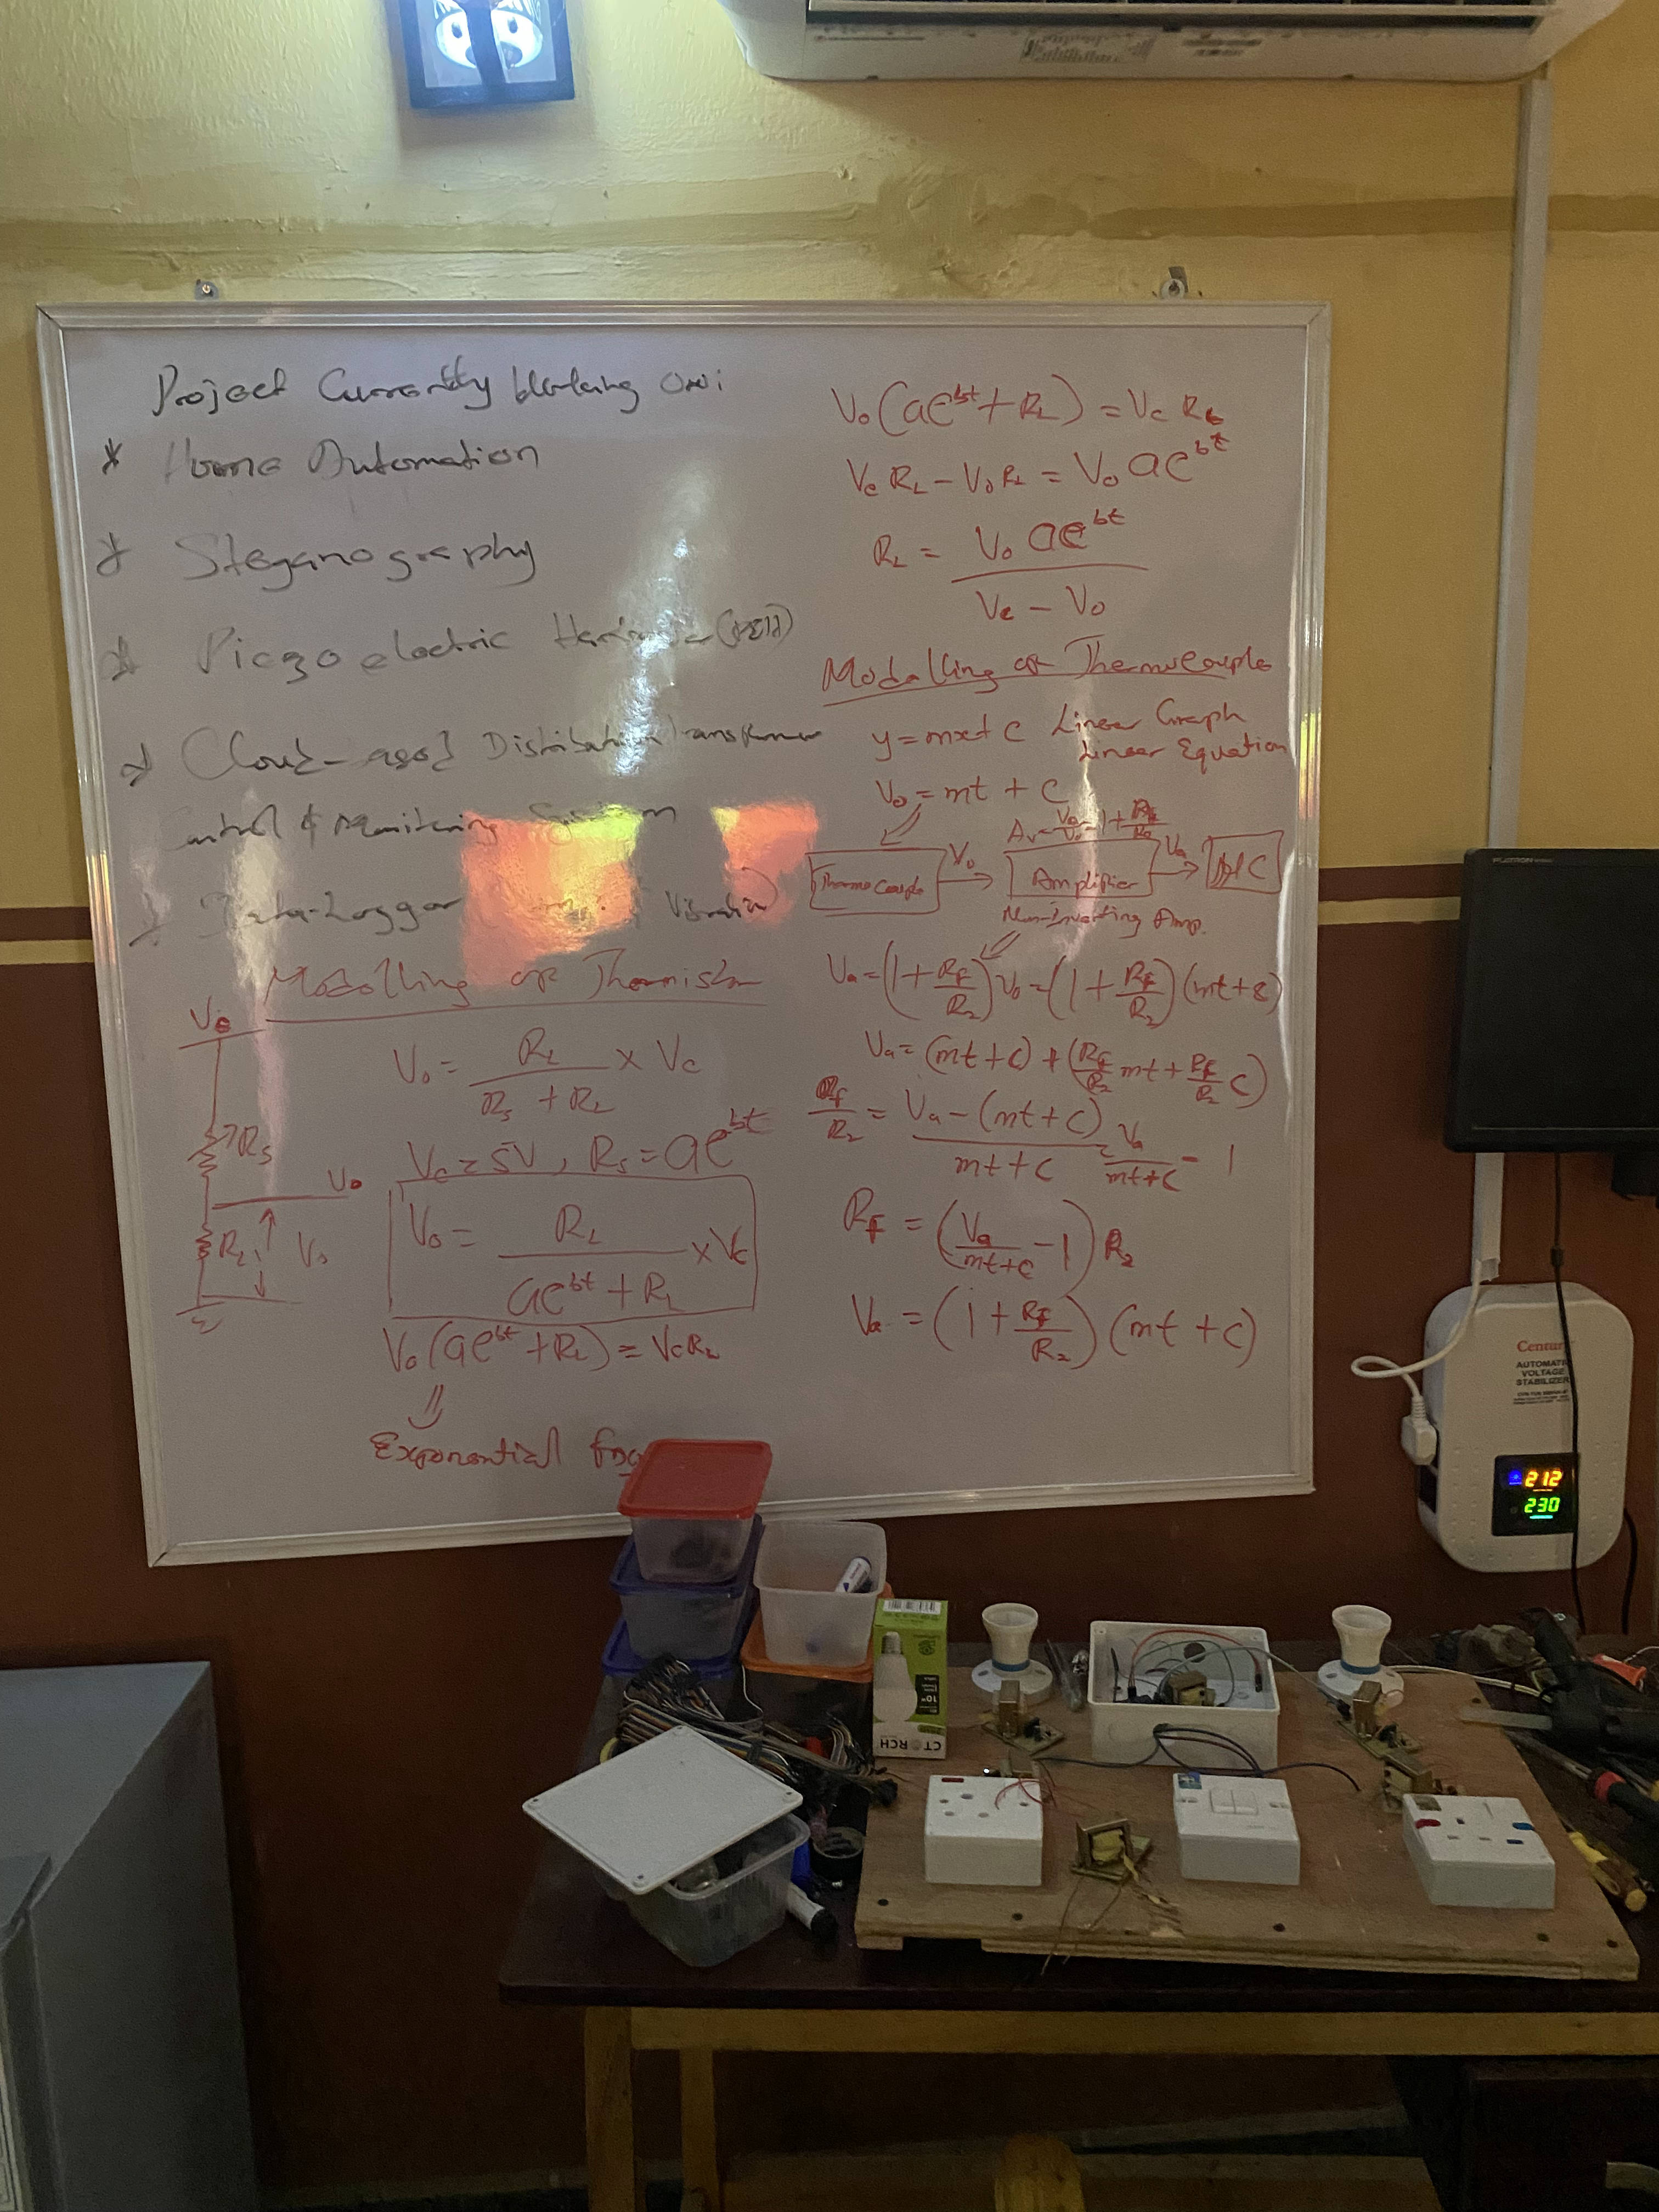 Project Currently Working On:
* Home Automation
* Steganography
* Piezoelectric
* Cloud-based Distribution Transformer
Control & Monitoring System
* Data-Logger Vibration)
Modelling of Thermistor
Vc
Rs
Vo
RL
Vo
Vo = RL / (Rs + RL) × Vc
Vc = 5V, Rs = ae^bt
Vo = RL / (ae^bt + RL) × Vc
Vo(ae^bt + RL) = VcRL
⇓
Exponential
Vo(ae^bt + RL) = Vc RL
Vc RL − Vo RL = Vo ae^bt
RL = Vo ae^bt / (Vc − Vo)
Modelling of Thermocouple
y = mx + c Linear Graph
Linear Equation
Vo = mt + C
Av = Va/Vo = 1 + Rf/R2
Thermocouple Vo → Amplifier Va → A/C
Non-Inverting Amp.
Va = (1 + Rf/R2) Vo = (1 + Rf/R2)(mt + c)
Va = (mt + c) + (Rf/R2 mt + Rf/R2 C)
Rf/R2 = (Va − (mt + c)) / (mt + c) = Va/(mt + c) − 1
Rf = (Va/(mt + c) − 1) R2
Va = (1 + Rf/R2)(mt + c)
Century
AUTOMATIC
VOLTAGE
STABILIZER
212
230
CTORCH